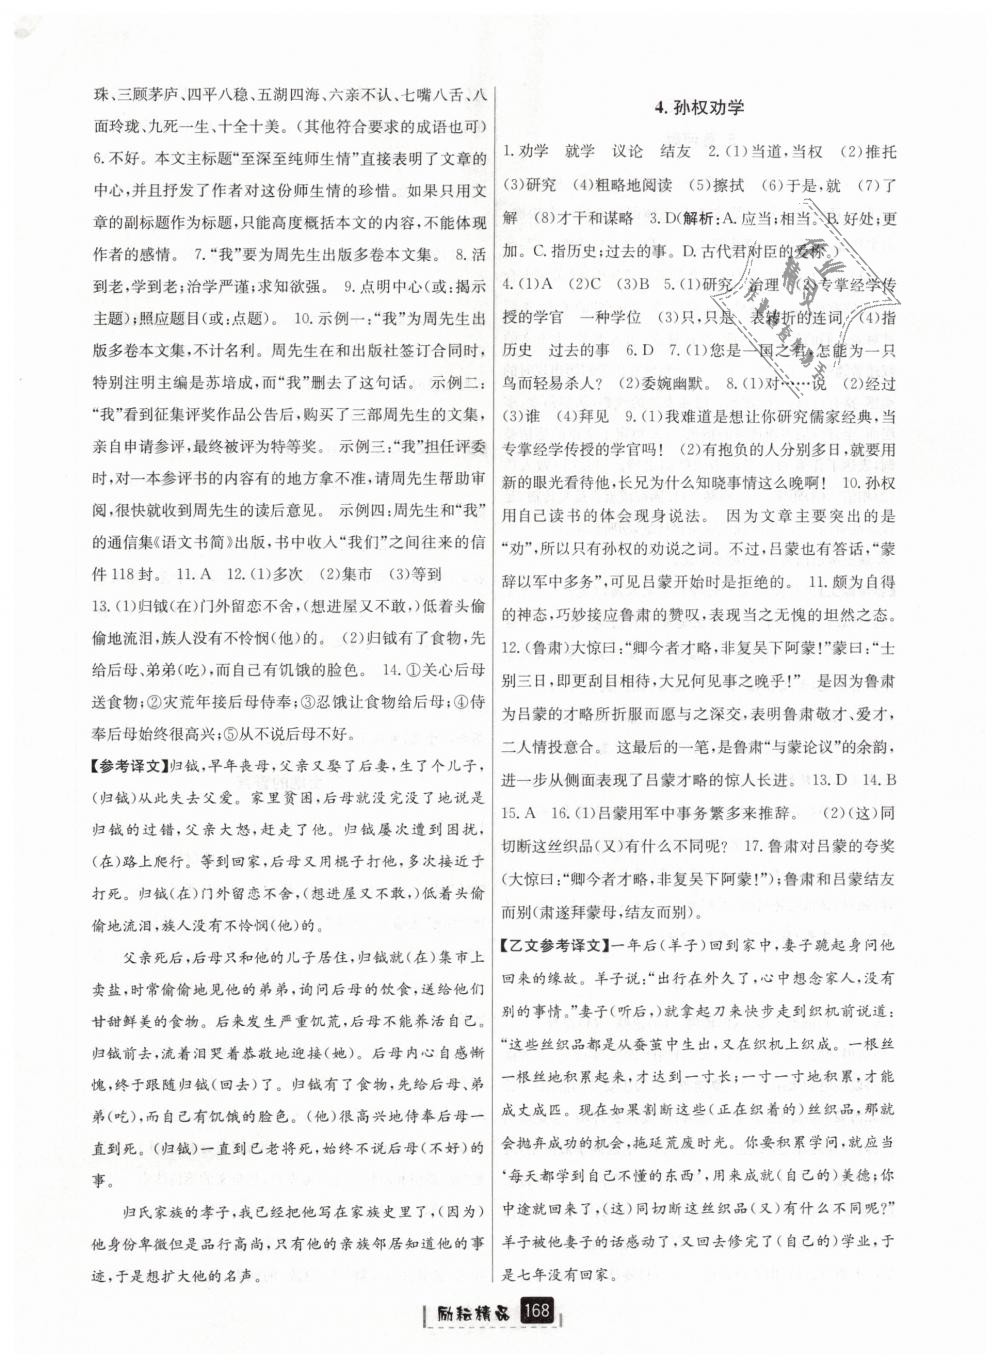 珠、三顾茅庐、四平八稳、五湖四海、六亲不认、七嘴八舌、八
面玲珑、九死一生、十全十美。(其他符合要求的成语也可)
6.不好。本文主标题“至深至纯师生情”直接表明了文章的
中心,并且抒发了作者对这份师生情的珍惜。如果只用文
章的副标题作为标题,只能高度概括本文的内容,不能体现
作者的感情。 7.“我”要为周先生出版多卷本文集。 8.活
到老,学到老;治学严谨;求知欲强。 9.点明中心(或:揭示
主题);照应题目(或:点题)。 10.示例一:“我”为周先生出
版多卷本文集,不计名利。周先生在和出版社签订合同时,
特别注明主编是苏培成,而“我”删去了这句话。 示例二:
“我”看到征集评奖作品公告后,购买了三部周先生的文集,
亲自申请参评,最终被评为特等奖。 示例三:“我”担任评委
时,对一本参评书的有的地方拿不准,请周先生帮助审
阅,很快就收到周先生的读后意见。 示例四:周先生和“我”
的通信集《语文书简》出版,书中收入“我们”之间往来的信
件118封。 11.A 12.(1)多次 (2)集市 (3)等到
13.(1)归钺(在)门外留恋不舍,(想进屋又不敢,)低着头偷
偷地流泪,族人没有不怜悯(他)的。 (2)归钺有了食物,先
给后母、弟弟(吃),而自己有饥饿的脸色。 14.①关心后母
送食物;②灾荒年接后母侍奉;③忍饿让食物给后母;④侍
奉后母始终很高兴;⑤从不说后母不好。
【参考译文】归钺,早年丧母,父亲又娶了后妻,生了个儿子,
(归钺)从此失去父爱。家里贫困,后母就没完没了地说是
归钺的过错,父亲大怒,赶走了他。归钺屡次遭到困扰,
(在)路上爬行。等到回家,后母又用棍子打他,多次接近于
打死。归钺(在)门外留恋不舍,(想进屋又不敢,)低着头偷
偷地流泪,族人没有不怜悯(他)的。
父亲死后,后母只和他的儿子居住,归钺(在)集市上
卖盐,时常偷偷地见他的弟弟,询问后母的饮食,送给他们
甘甜鲜美的食物。后来发生严重饥荒,后母不能养活自己。
归钺前去,流着泪哭着恭敬地迎接(她)。后母内心自感惭
愧,终于跟随归钺(回去)了。归钺有了食物,先给后母、弟
弟(吃),而自己有饥饿的脸色。(他)很高兴地侍奉后母一
直到死。(归钺)一直到已老将死,始终不说后母(不好)的
事。
归氏家族的孝子,我已经把他写在家族史里了,(因为)
他身份卑微但是品行高尚,只有他的亲族邻居知道他的事
迹,于是想扩大他的名声。
4.孙权劝学
1.劝学 就学 议论 结友 2.(1)当道,当权 (2)推托
(3)研究 (4)粗略地阅读 (5)擦拭 (6)于是,就 (7)了
解 (8)才干和谋略 3.D(解析:A.应当;相当。B.好处;更
加。C.指历史;过去的事。D.古代君对臣的爱称。)
4.(1)A (2)C (3)B 5.(1)研究 治理 (2)专掌经学传
授的学官 一种学位 (3)只,只是 表转折的连词 (4)指
历史 过去的事 6.D 7.(1)您是一国之君,怎能为一只
鸟而轻易杀人? (2)委婉幽默。 8.(1)对……说 (2)经过
(3)谁 (4)拜见 9.(1)我难道是想让你研究儒家经典,当
专掌经学传授的学官吗! (2)有抱负的人分别多日,就要用
新的眼光看待他,长兄为什么知晓事情这么晚啊! 10.孙权
用自己读书的体会现身说法。 因为文章主要突出的是
“劝”,所以只有孙权的劝说之词。不过,吕蒙也有答话,“蒙
辞以军中多务”,可见吕蒙开始时是拒绝的。 11.颇为自得
的神态,巧妙接应鲁肃的赞叹,表现当之无愧的坦然之态。
12.(鲁肃)大惊曰:“卿今者才略,非复吴下阿蒙!”蒙曰:“士
别三日,即更刮目相待,大兄何见事之晚乎!” 是因为鲁肃
为吕蒙的才略所折服而愿与之深交,表明鲁肃敬才、爱才,
二人情投意合。 这最后的一笔,是鲁肃“与蒙论议”的余韵,
进一步从侧面表现了吕蒙才略的惊人长进。 13.D 14.B
15.A 16.(1)吕蒙用军中事务繁多来推辞。 (2)(这)同
切断这丝织品(又)有什么不同呢? 17.鲁肃对吕蒙的夸奖
(大惊曰:“卿今者才略,非复吴下阿蒙!”);鲁肃和吕蒙结友
而别(肃遂拜蒙母,结友而别)。
【乙文参考译文】一年后(羊子)回到家中,妻子跪起身问他
回来的缘故。羊子说:“出行在外久了,心中想念家人,没有
别的事情。”妻子(听后,)就拿起刀来快步走到织机前说道:
“这些丝织品都是从蚕茧中生出,又在织机上织成。一根丝
一根丝地积累起来,才达到一寸长;一寸一寸地积累,才能
成丈成匹。现在如果割断这些(正在织着的)丝织品,那就
会抛弃成功的机会,拖延荒废时光。你要积累学问,就应当
‘每天都学到自己不懂的东西’,用来成就(自己的)美德;你
中途就回来了,(这)同切断这丝织品(又)有什么不同呢?”
羊子被他妻子的话感动了,又回去修完了(自己的)学业,于
是七年没有回家。
作业
精灵
励耘精品 168